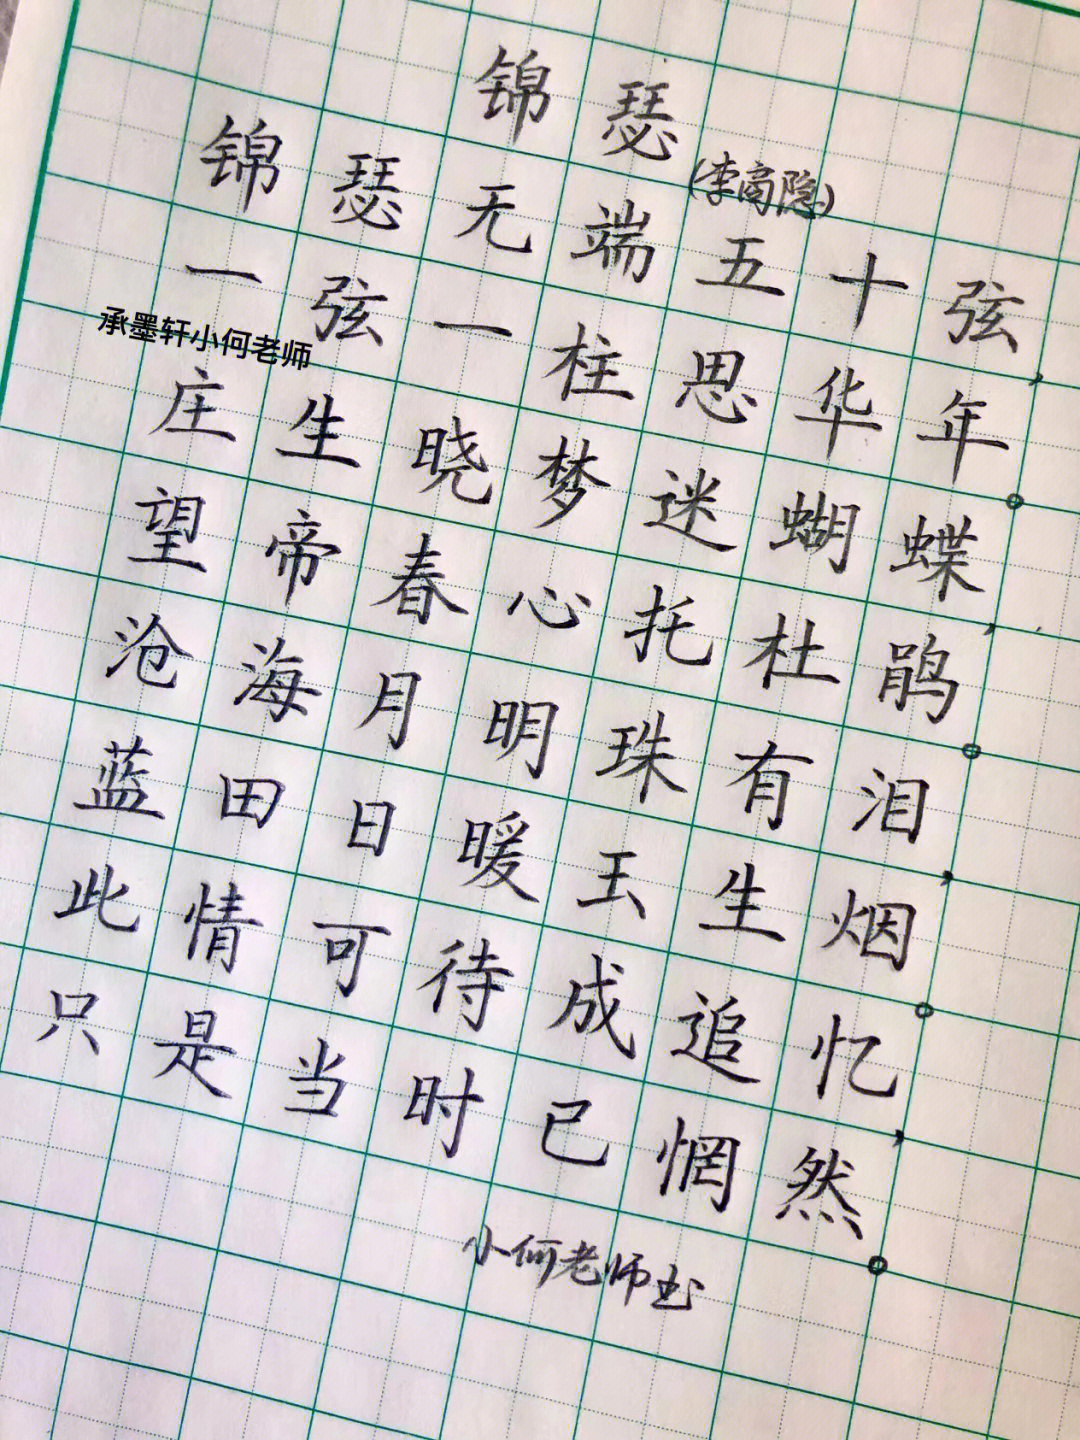 锦瑟
(李商隐)
锦瑟无端五十弦，
一弦一柱思华年。
承墨轩小何老师
庄生晓梦迷蝴蝶，
望帝春心托杜鹃。
沧海月明珠有泪，
蓝田日暖玉生烟。
此情可待成追忆，
只是当时已惘然。
小何老师书